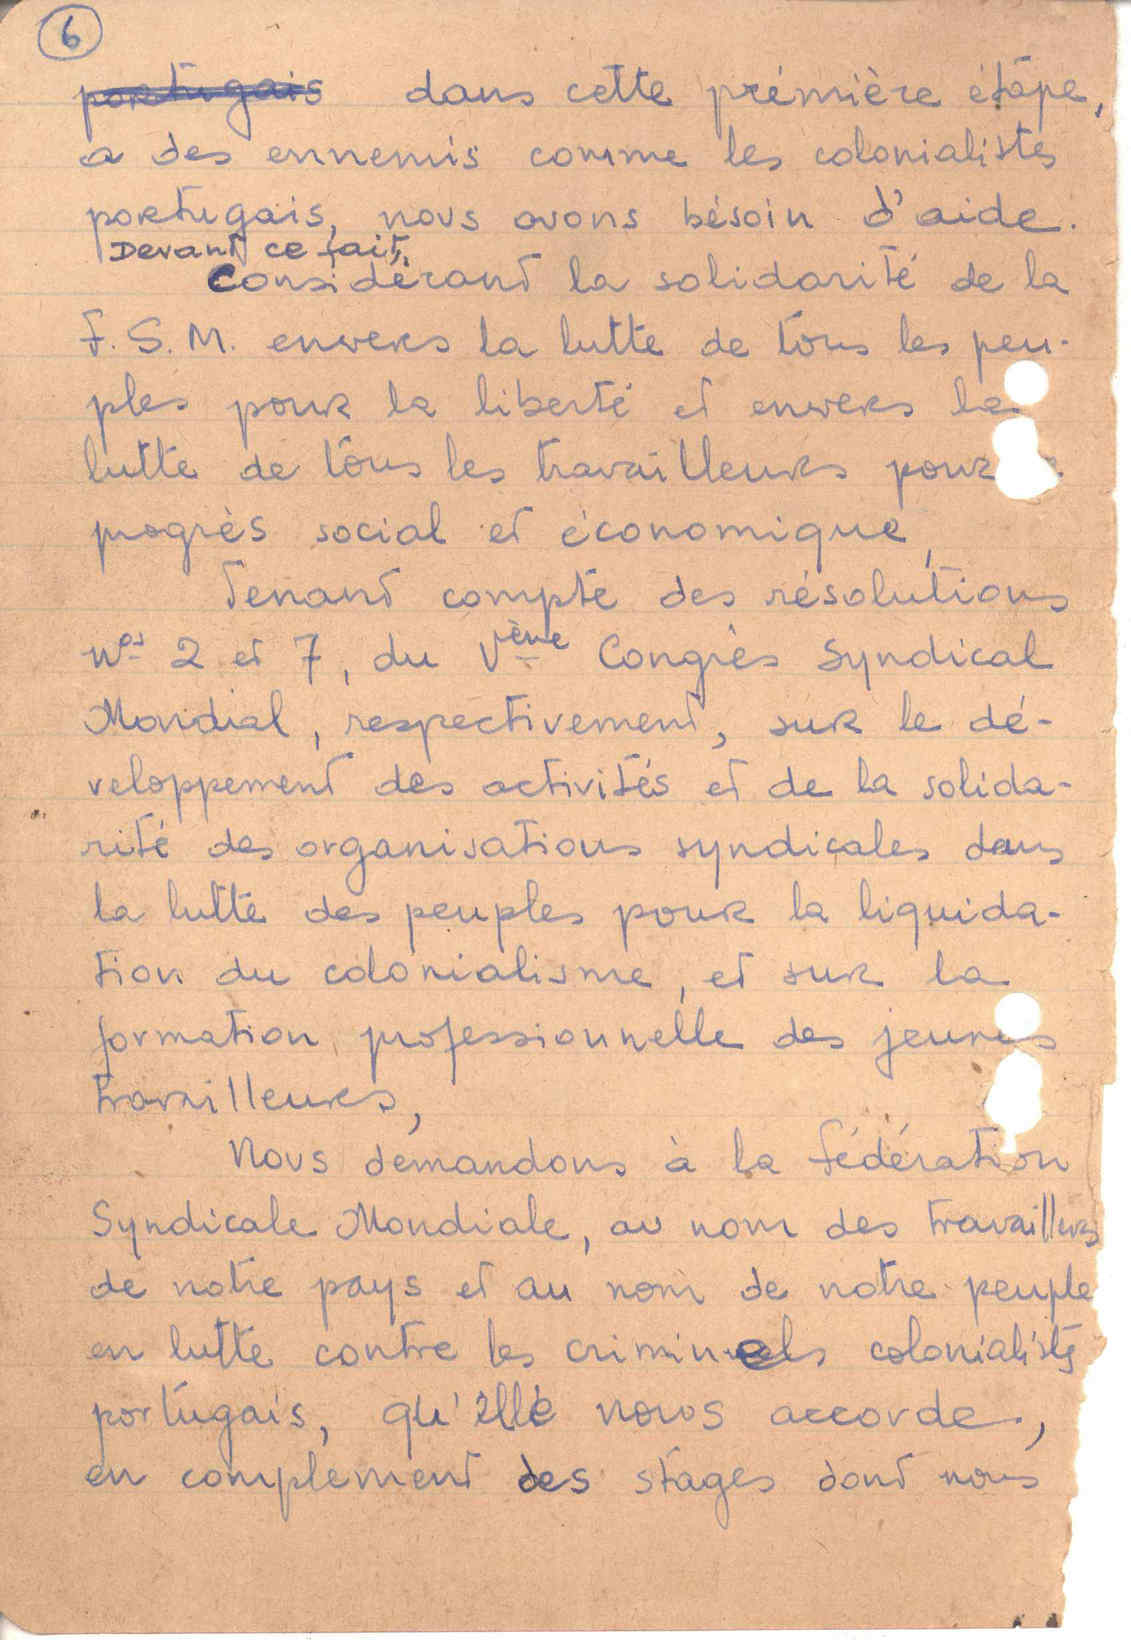 6
portugais dans cette prémière étape,
a des ennemis comme les colonialistes
portugais, nous avons bésoin d'aide.
Devant ce fait,
Considérant la solidarité de la
F.S.M. envers la lutte de tous les peu-
ples pour la liberté et envers la
lutte de tous les travailleurs pour
progrès social et économique,
Tenant compte des résolutions
nos 2 et 7, du Vème Congrès Syndical
Mondial, respectivement, sur le dé-
veloppement des activités et de la solida-
rité des organisations syndicales dans
la lutte des peuples pour la liquida-
tion du colonialisme, et sur la
formation professionnelle des jeunes
travailleurs,
Nous démandons à la Fédération
Syndicale Mondiale, au nom des travailleurs
de notre pays et au nom de notre peuple
en lutte contre les criminels colonialistes
portugais, qu'elle nous accorde,
en complement des stages dont nous